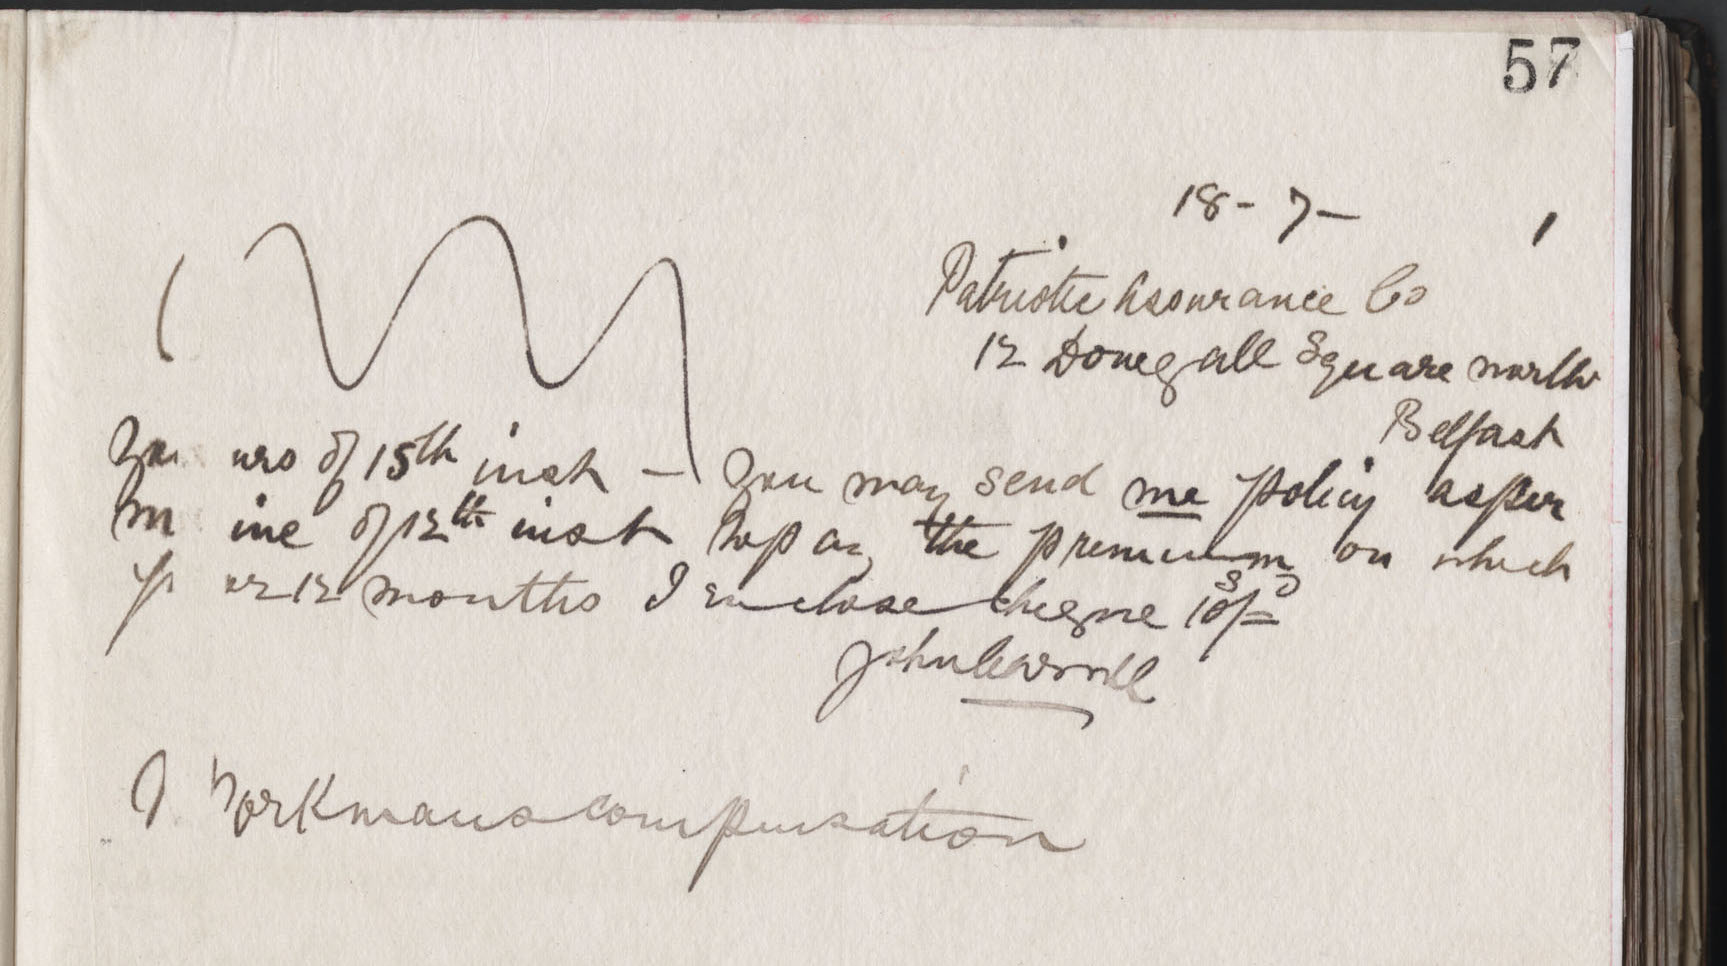 57
18-7- 1
Patriotic Assurance Co
12 Donegall Square north
Belfast
You urs of 15th inst — You may send me policy as per
m ine of 12th inst the premium on which
12 months I enclose cheque 10/=
John
Workmans compensation